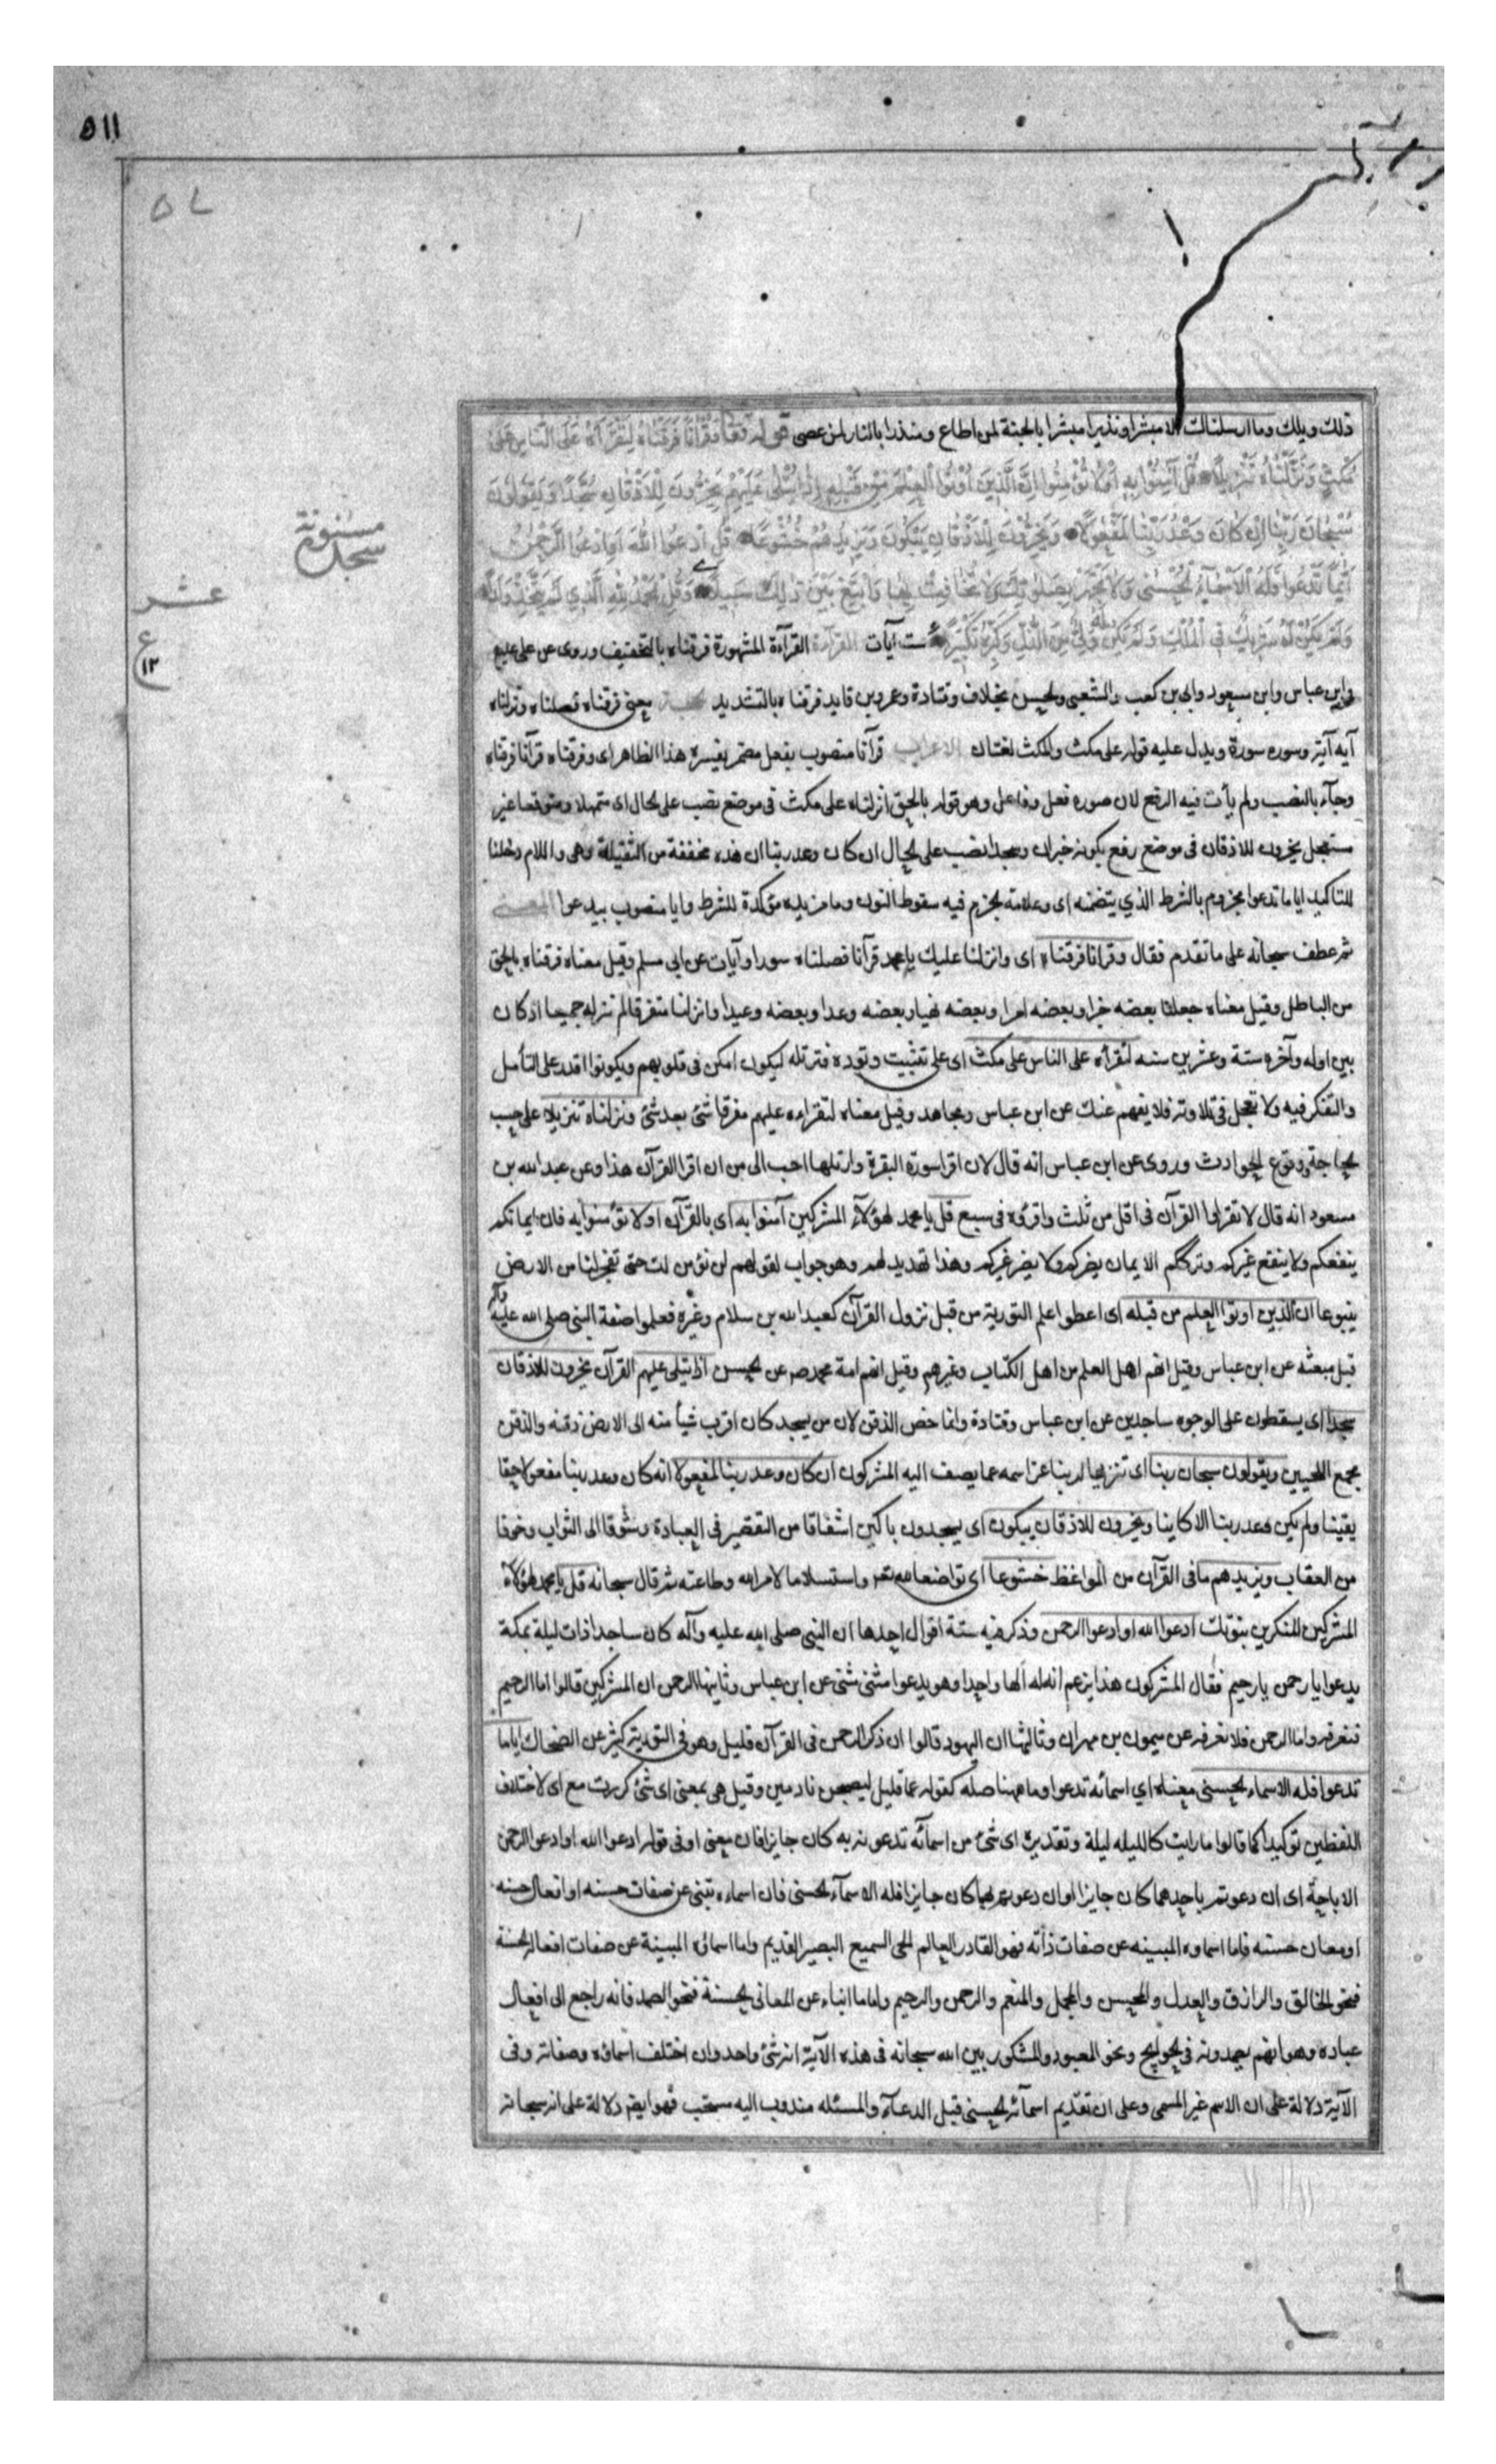 ٥١١
٥٧
ذلك ويلك وما ارسلناك الا مبشرا ونذيرا مبشرا بالجنة لمن اطاع ومنذرا بالنار لمن عصى قوله تعالى وَقُرْآنًا فَرَقْنَاهُ لِتَقْرَأَهُ عَلَى النَّاسِ عَلَى
مُكْثٍ وَنَزَّلْنَاهُ تَنْزِيلًا قُلْ آمِنُوا بِهِ أَوْ لَا تُؤْمِنُوا إِنَّ الَّذِينَ أُوتُوا الْعِلْمَ مِنْ قَبْلِهِ إِذَا يُتْلَى عَلَيْهِمْ يَخِرُّونَ لِلْأَذْقَانِ سُجَّدًا وَيَقُولُونَ
سُبْحَانَ رَبِّنَا إِنْ كَانَ وَعْدُ رَبِّنَا لَمَفْعُولًا وَيَخِرُّونَ لِلْأَذْقَانِ يَبْكُونَ وَيَزِيدُهُمْ خُشُوعًا قُلِ ادْعُوا اللَّهَ أَوِ ادْعُوا الرَّحْمٰنَ
أَيًّا مَا تَدْعُوا فَلَهُ الْأَسْمَاءُ الْحُسْنَى وَلَا تَجْهَرْ بِصَلَوتِكَ وَلَا تُخَافِتْ بِهَا وَابْتَغِ بَيْنَ ذٰلِكَ سَبِيلًا وَقُلِ الْحَمْدُ لِلَّهِ الَّذِي لَمْ يَتَّخِذْ وَلَدًا
وَلَمْ يَكُنْ لَهُ شَرِيكٌ فِي الْمُلْكِ وَلَمْ يَكُنْ لَهُ وَلِيٌّ مِنَ الذُّلِّ وَكَبِّرْهُ تَكْبِيرًا ست آيات القرآءة القرآءة المشهورة فرقناه بالتخفيف وروى عن على ع
وابن عباس وابن مسعود وابى بن كعب والشعبى والحسن بخلاف وقتادة وعمرو بن قايد فرقناه بالتشديد الحجة معنى فرقناه فصلناه ونزلناه
آية آية وسورة سورة ويدل عليه قوله على مكث والمكث لغتان الاعراب قرآنا منصوب بفعل مضمر يفسره هذا الظاهر اى وفرقناه قرآنا فرقناه
وجآء بالنصب ولم يأت فيه الرفع لان صدره فعل وفاعل وهو قوله بالحق انزلناه على مكث فى موضع نصب على الحال اى متمهلا ومتوقفا غير
مستعجل يخرون للاذقان فى موضع رفع بكونه خبر ان وسجدا نصب على الحال ان كان وعد ربنا ان هذه مخففة من الثقيلة وهى واللام دخلنا
للتاكيد ايا ما تدعوا مجزوم بالشرط الذي يتضمنه اى وعلامة الجزم فيه سقوط النون وما مزيده مؤكدة للشرط وايا منصوب بيدعوا المعنى
ثم عطف سبحانه على ما تقدم فقال وقرانا فرقناه اى وانزلنا عليك يا محمد قرآنا فصلناه سورا وآيات عن ابى مسلم وقيل معناه فرقناه بالحق
من الباطل وقيل معناه جعلنا بعضه خبرا وبعضه امرا وبعضه نهيا وبعضه وعدا وبعضه وعيدا وانزلنا متفرقا لم ننزله جميعا اذ كان
بين اوله وآخره ستة وعشرين سنه لتقرأه على الناس على مكث اى على تثبيت وتوده فترتله ليكون امكن فى قلوبهم ويكونوا اقدر على التأمل
والتفكر فيه ولا تعجل فى تلاوته فلا يفهم عنك عن ابن عباس ومجاهد وقيل معناه لتقراءه عليهم مفرقا شئ بعد شئ ونزلناه تنزيلا على حسب
الحاجة ووقوع الحوادث وروى عن ابن عباس انه قال لان اقرا سورة البقرة وارتلها احب الى من ان اقرا القرآن هذا وعن عبد الله بن
مسعود انه قال لا تقرأوا القرآن فى اقل من ثلث واقرؤه فى سبع قل يا محمد لهؤلآء المشركين آمنوا به اى بالقرآن اولا تؤمنوا به فان ايمانكم
ينفعكم ولا ينفع غيركم وترككم الايمان يضركم ولا يضر غيركم وهذا تهديد لهم وهو جواب لقولهم لن نؤمن لك حتى تفجر لنا من الارض
ينبوعا ان الذين اوتوا العلم من قبله اى اعطوا علم التورية من قبل نزول القرآن كعبد الله بن سلام وغيره فعلموا صفة النبى صلى الله عليه وآله
قبل مبعثه عن ابن عباس وقيل انهم اهل العلم من اهل الكتاب وغيرهم وقيل انهم امة محمد ص عن الحسن اذا يتلى عليهم القرآن يخرون للاذقان
سجدا اى يسقطون على الوجوه ساجدين عن ابن عباس وقتادة وانما خص الذقن لان من يسجد كان اقرب شيأ منه الى الارض ذقنه والذقن
مجمع اللحيين ويقولون سبحان ربنا اى تنزيها لربنا عز اسمه عما يصف اليه المشركون ان كان وعد ربنا لمفعولا انه كان وعد ربنا مفعولا حقا
يقينا ولم يكن وعد ربنا الا كاينا ويخرون للاذقان يبكون اى يسجدون باكين اشفاقا من التقصير فى العبادة وشوقا الى الثواب وخوفا
من العقاب ويزيدهم ما فى القرآن من المواعظ خشوعا اى تواضعا لله تعالى واستسلاما لامر الله وطاعته ثم قال سبحانه قل يا محمد لهؤلآء
المشركين المنكرين بنوتك ادعوا الله او ادعوا الرحمن وذكر فيه ستة اقوال احدها ان النبى صلى الله عليه وآله كان ساجدا ذات ليلة بمكة
يدعوا يا رحمن يا رحيم فقال المشركون هذا يزعم انه له الها واحدا وهو يدعوا مثنى مثنى عن ابن عباس وثانيها الرحمن ان المشركين قالوا اما الرحيم
فنعرفه واما الرحمن فلا نعرفه عن ميمون بن مهران وثالثها ان اليهود قالوا ان ذكر الرحمن فى القرآن قليل وهو فى التورية كثير عن الضحاك اياما
تدعوا فله الاسماء الحسنى معناه اي اسمائه تدعوا وما ههنا صله كقوله عما قليل ليصبحن نادمين وقيل هى بمعنى اى شئ كررت مع اى لاختلاف
اللفظين توكيدا كما قالوا ما رايت كالليله ليلة وتقديره اى شئ من اسمآئه تدعونه به كان جايزا فان معنى او فى قوله ادعوا الله او ادعوا الرحمن
الاباحة اى ان دعوتم باحدهما كان جايزا وان دعوتم بهما كان جايزا فله الاسمآء الحسنى فان اسماءه تنبى عن صفات حسنه او افعال حسنه
او معان حسنه فاما اسماوه المبينه عن صفات ذاته فهو القادر العالم الحى السميع البصير القديم واما اسماؤه المبينة عن صفات افعاله الحسنة
فنحو الخالق والرازق والعدل والمحسن والمجمل والمنعم والرحمن والرحيم واما ما انباء عن المعانى الحسنة فنحو الصمد فانه راجع الى افعال
عباده وهو انهم يصمدونه فى الحوايج ونحو المعبود والمشكور بين الله سبحانه فى هذه الآية انه شئ واحد وان اختلف اسماؤه وصفاته وفى
الآية دلالة على ان الاسم غير المسمى وعلى ان تقديم اسمآئه الحسنى قبل الدعآء والمسئله مندوب اليه مستحب فهو ايضا دلالة على انه سبحانه
مسنونة
سجدة
عشر
ع
١٢